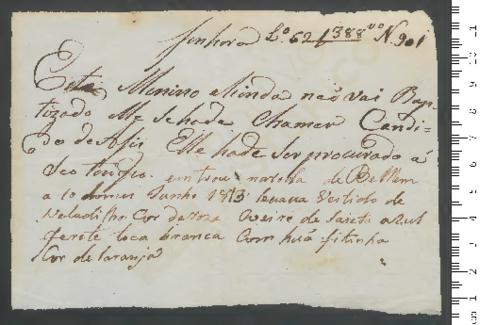 Senhora L.º 62 f 388 vº N. 901
Este Menino Ainda não vai Bap-
tizado Mf Sehade Chamar Candi-
do de Asis Elle hade Ser procurado á
Seo tempo. entrou na rõda de Bellem
a 10 do mes Junho 1813 levava Vestido de
Veludilho Cor de roza Coeiro de baieta azul
touca branca Com huã fitinha
Cor de laranja